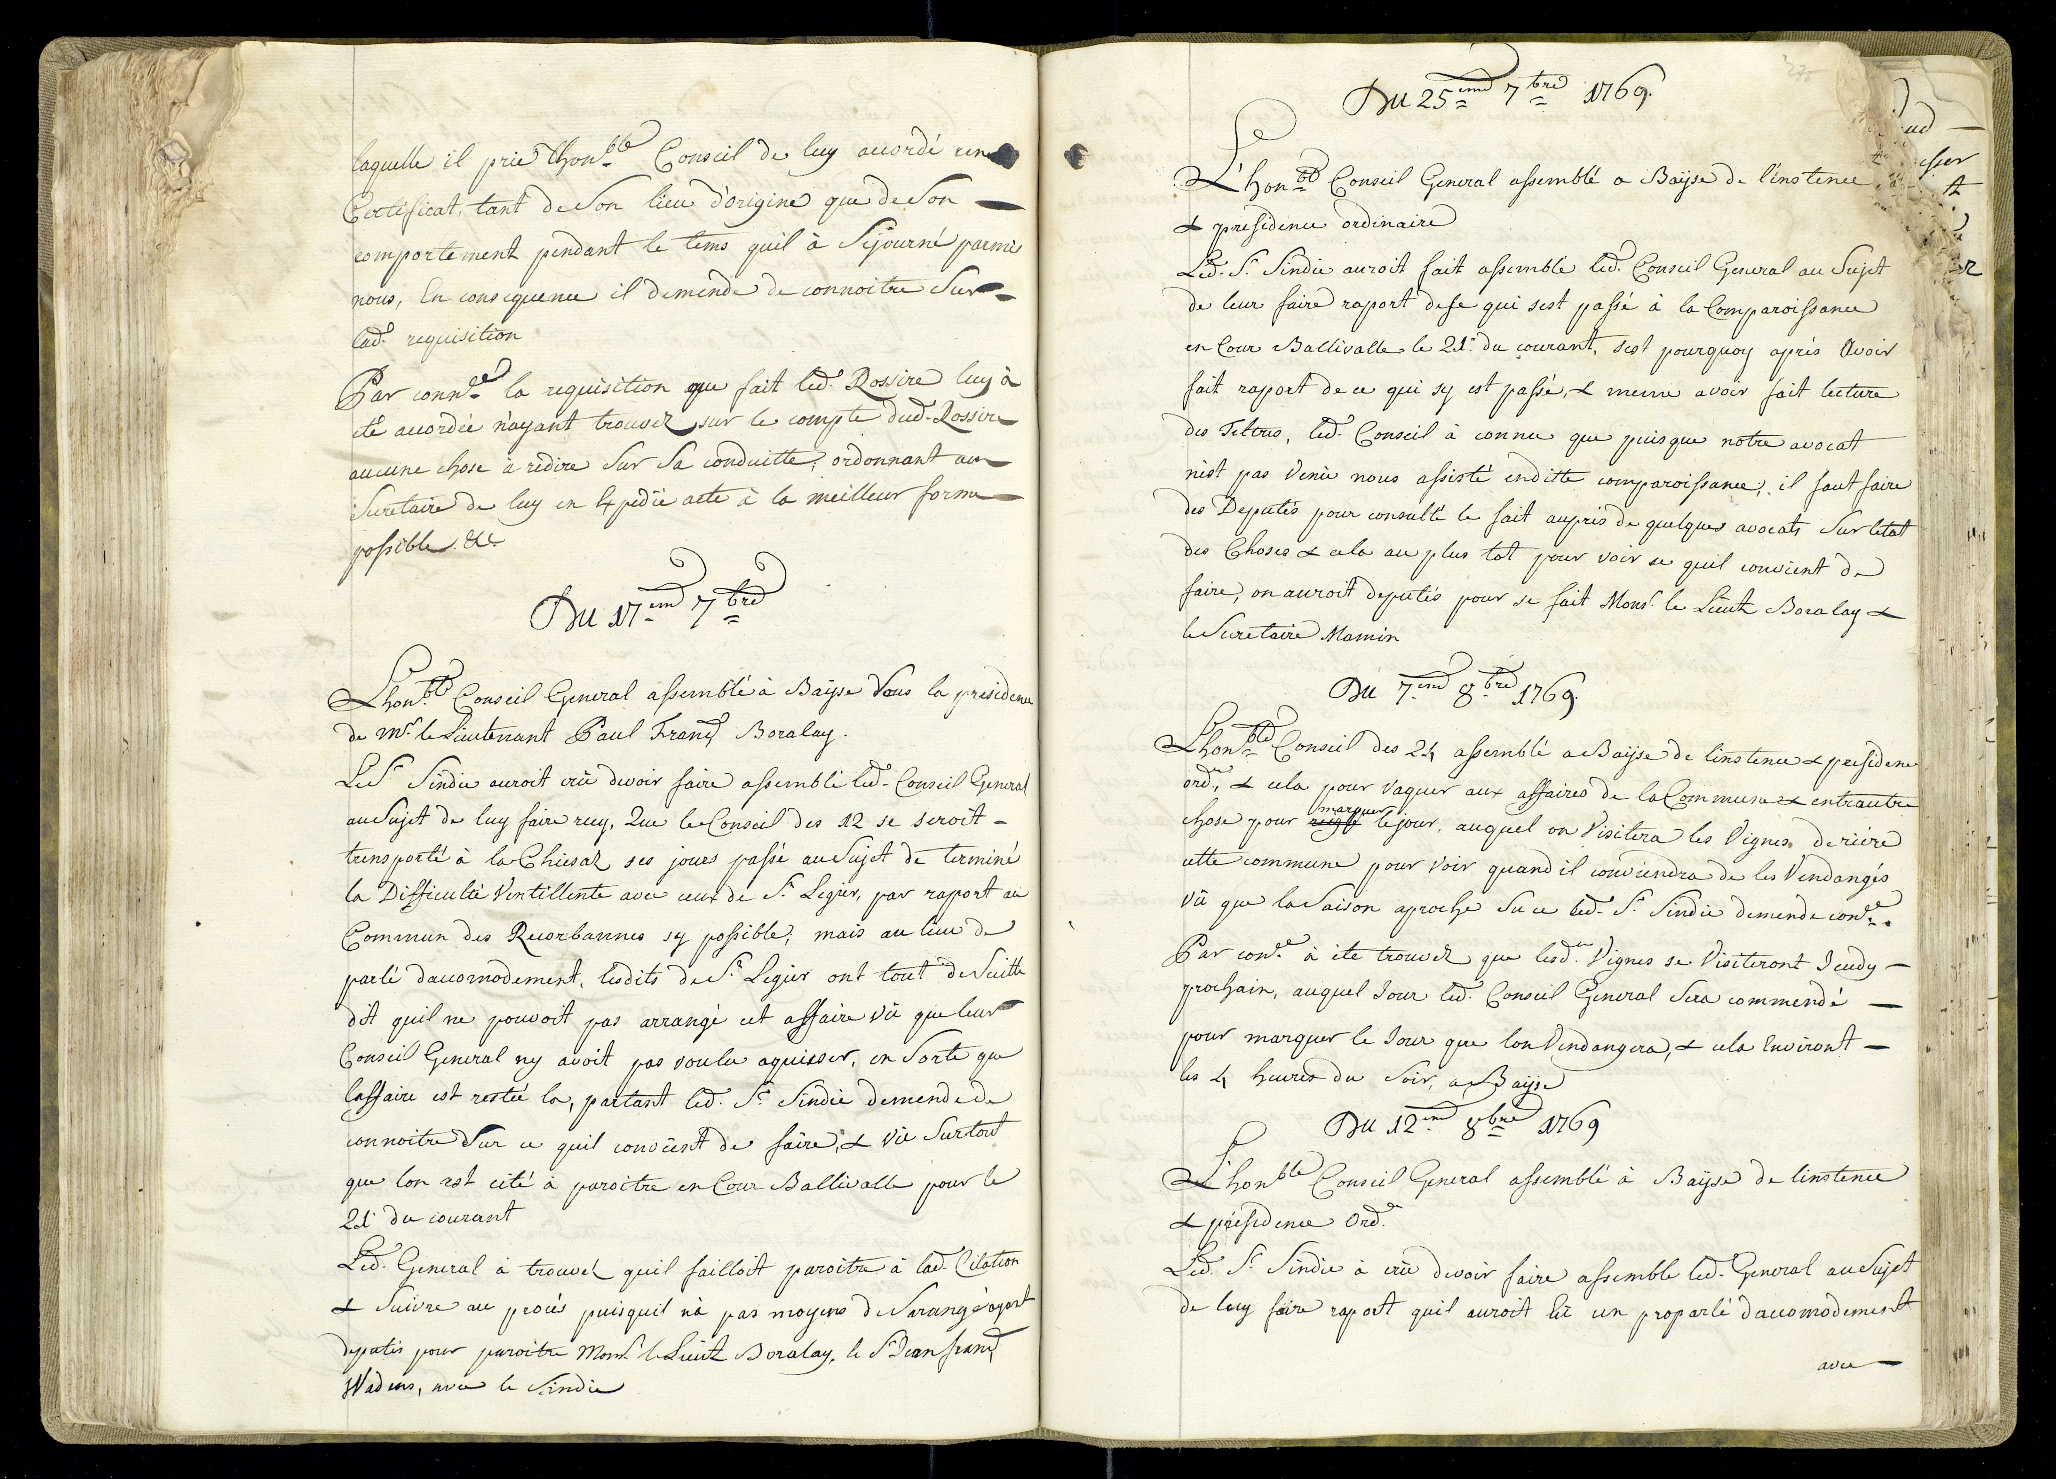 laquelle il prie Lhon.ble Conseil de luy accordé un
Certificat, tant de Son lieu d'origine que de Son
comportement pendant le tems quil à Sejourné parmis
nous, En consequence il demende de connoitre Sur
lad. requisition
Par conn.ce la requisition que fait led. Rossire luy à
eté accordée n'ayant trouvez sur le compte dud. Rossire
aucune chose à redire Sur Sa conduitte; ordonnant au
Secretaire de luy en Expedïe acte à la meilleur forme
possible. &c.
Du 17.eme 7.bre
Lhon.ble Conseil General assemblé à Baÿse Sous la presidence
de Mr. le Lieutenant Paul Franç Boralay.
Le Sr. Sindic auroit crû devoir faire assemblé led. Conseil General
au Sujet de luy faire recy, Que le Conseil des 12 se seroit
trensporté à la Chiesaz ses jours passé au Sujet de terminé
la Difficulté Ventillente avec ceux de St. Legier, par raport au
Commun des Rucorbannes sy possible; mais au lieu de
parlé daccomodement, lesdits de St. Legier ont tout de Suitte
dit quil ne pouvoit pas arrangé cet affaire vû que leur
Conseil General ny avoit pas voulu aquiesser, en Sorte que
laffaire est restée la, partant led. Sr. Sindic demende de
connoitre Sur ce quil convïent de faire, & vû Surtout
que lon est cité à paroitre en Cour Ballivalle pour le
21. du courant
Led. General à trouvez quil failloit paroitre à lad. Citation
& Suivre au procés puisquil n'à pas moyens de Sarangé ayant
deputés pour paroitre Monsr. le Lieut Boralay, le Sr. Jean franç
Wadens, avec le Sindic
Du 25.eme 7.bre 1769.
L'hon.ble Conseil General assemblé a Baÿse de l'instence
& presidence ordinaire
Led. Sr. Sindic auroit fait assemble led. Conseil General au Sujet
de leur faire raport de se qui sest passé à la Comparoissance
en Cour Ballivalle le 21. du courant, sest pourquoy aprés Avoir
fait raport de ce qui sy est passé, & meme avoir fait lecture
des Tiltres, led. Conseil à connu que puis que notre avocat
n'est pas Venu nous assisté enditte comparoissance, il faut faire
des Deputés pour consulté le fait aupris de quelques avocats Sur létat
des Choses & cela au plus tot pour voir se quil convient de
faire, on auroit deputés pour se fait Monsr. le Lieut Boralay &
le Secretaire Mamin
Du 7.eme 8.bre 1769.
Lhon.ble Conseil des 24 assemblé a Baÿse de linstence & presidence
ordre, & cela pour Vaquer aux affaires de la Commune & entrautre
marquer
chose pour le jour, auquel on Visitera les Vignes deriére
cette commune pour voir quand il conviendra de les Vendangés
Vû que la Saison aproche Su ce led. Sr. Sindic demende con.ce
Par con.ce à été trouvez que lesd. Vignes se Visiteront Jeudy
prochain, auquel Jour led. Conseil General Sera commendé
pour marquer le Jour que lon Vendangera, & cela Environt
les 4 heures du Soir, a Baÿse
Du 12.eme 8.bre 1769
L'honble Conseil General assemblé à Baÿse de linstence
& présidence Ord.e
Led. Sr. Sindic à crû devoir faire assemble led. General au Sujet
de luy faire raport quil auroit Eû un proparlé daccomodement
avec